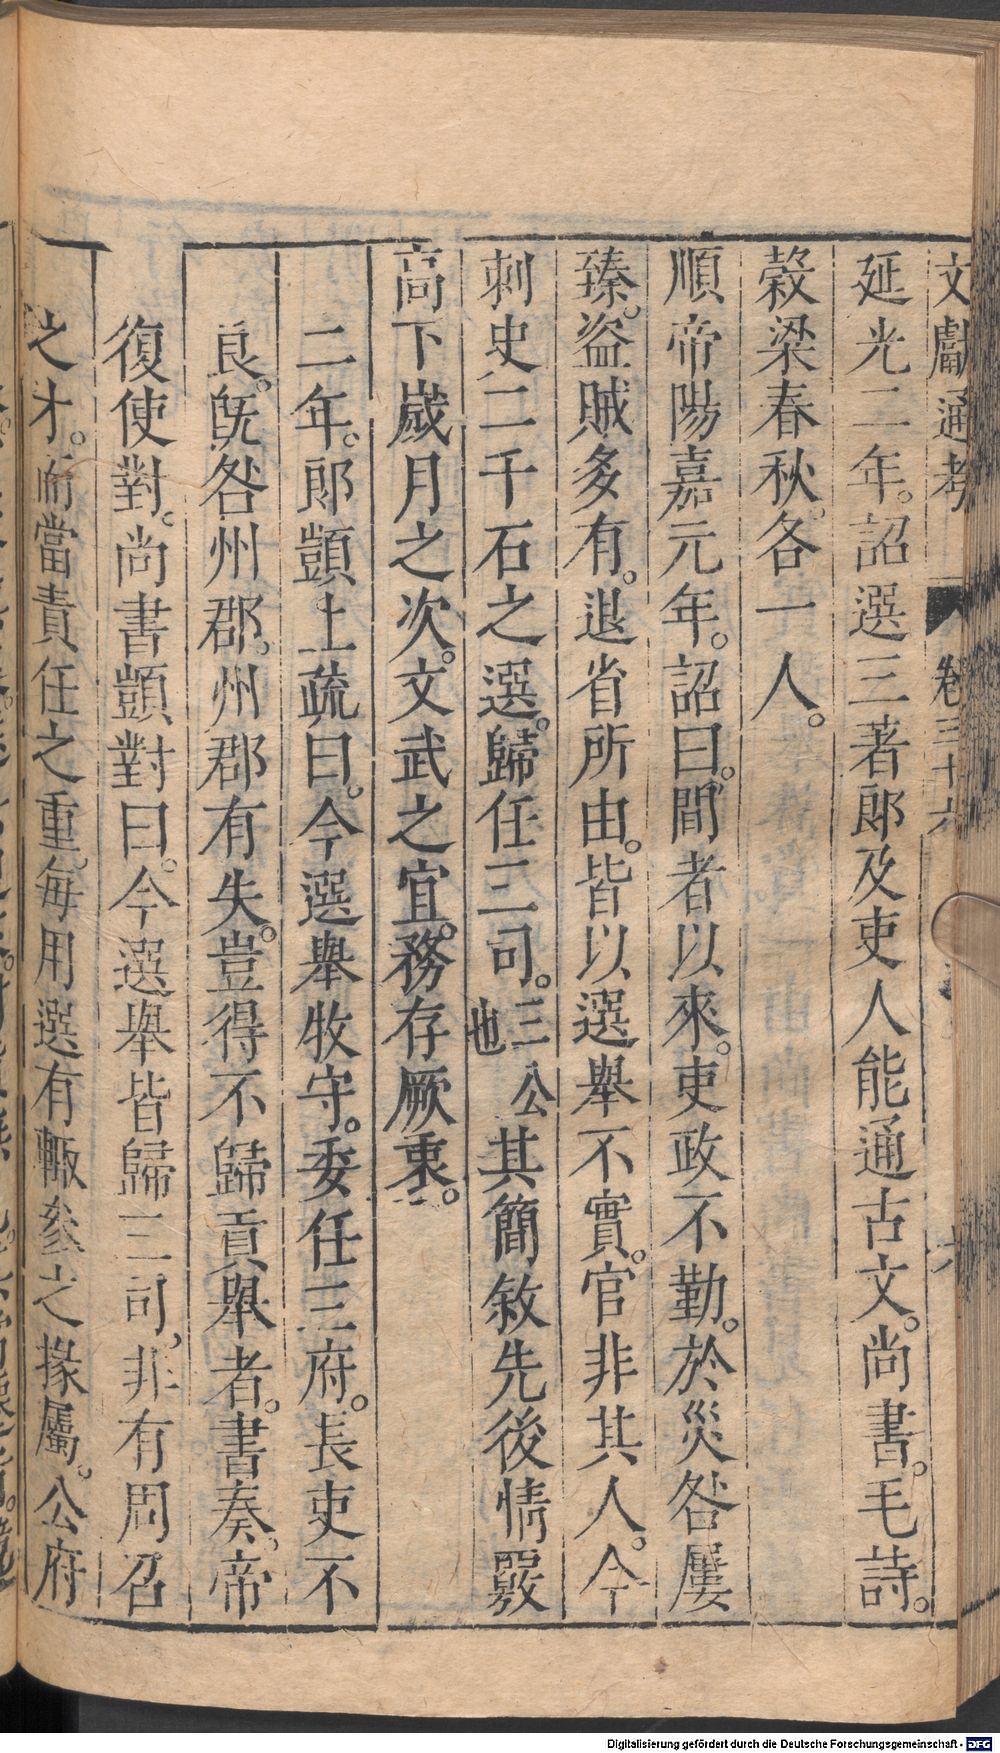 文獻通考 卷三十六 六
延光二年。詔選三著郎及吏人能通古文。尚書。毛詩。
穀梁春秋。各一人。
順帝陽嘉元年。詔曰。間者以來。吏政不勤。於災咎屢
臻。盜賊多有。退省所由。皆以選舉不實。官非其人。今
刺史二千石之選。歸任三司。三公也其簡敘先後情覈
高下歲月之次。文武之宜。務存厥衷。
二年。郎顗上疏曰。今選舉牧守。委任三府。長吏不
良。旣咎州郡。州郡有失。豈得不歸貢舉者。書奏。帝
復使對。尚書顗對曰。今選舉皆歸三司。非有周召
之才。而當責任之重。每用選有輙參之掾屬。公府
Digitalisierung gefördert durch die Deutsche Forschungsgemeinschaft - DFG